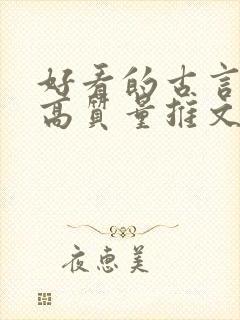 好看的古言
高质量推文
夜惠美